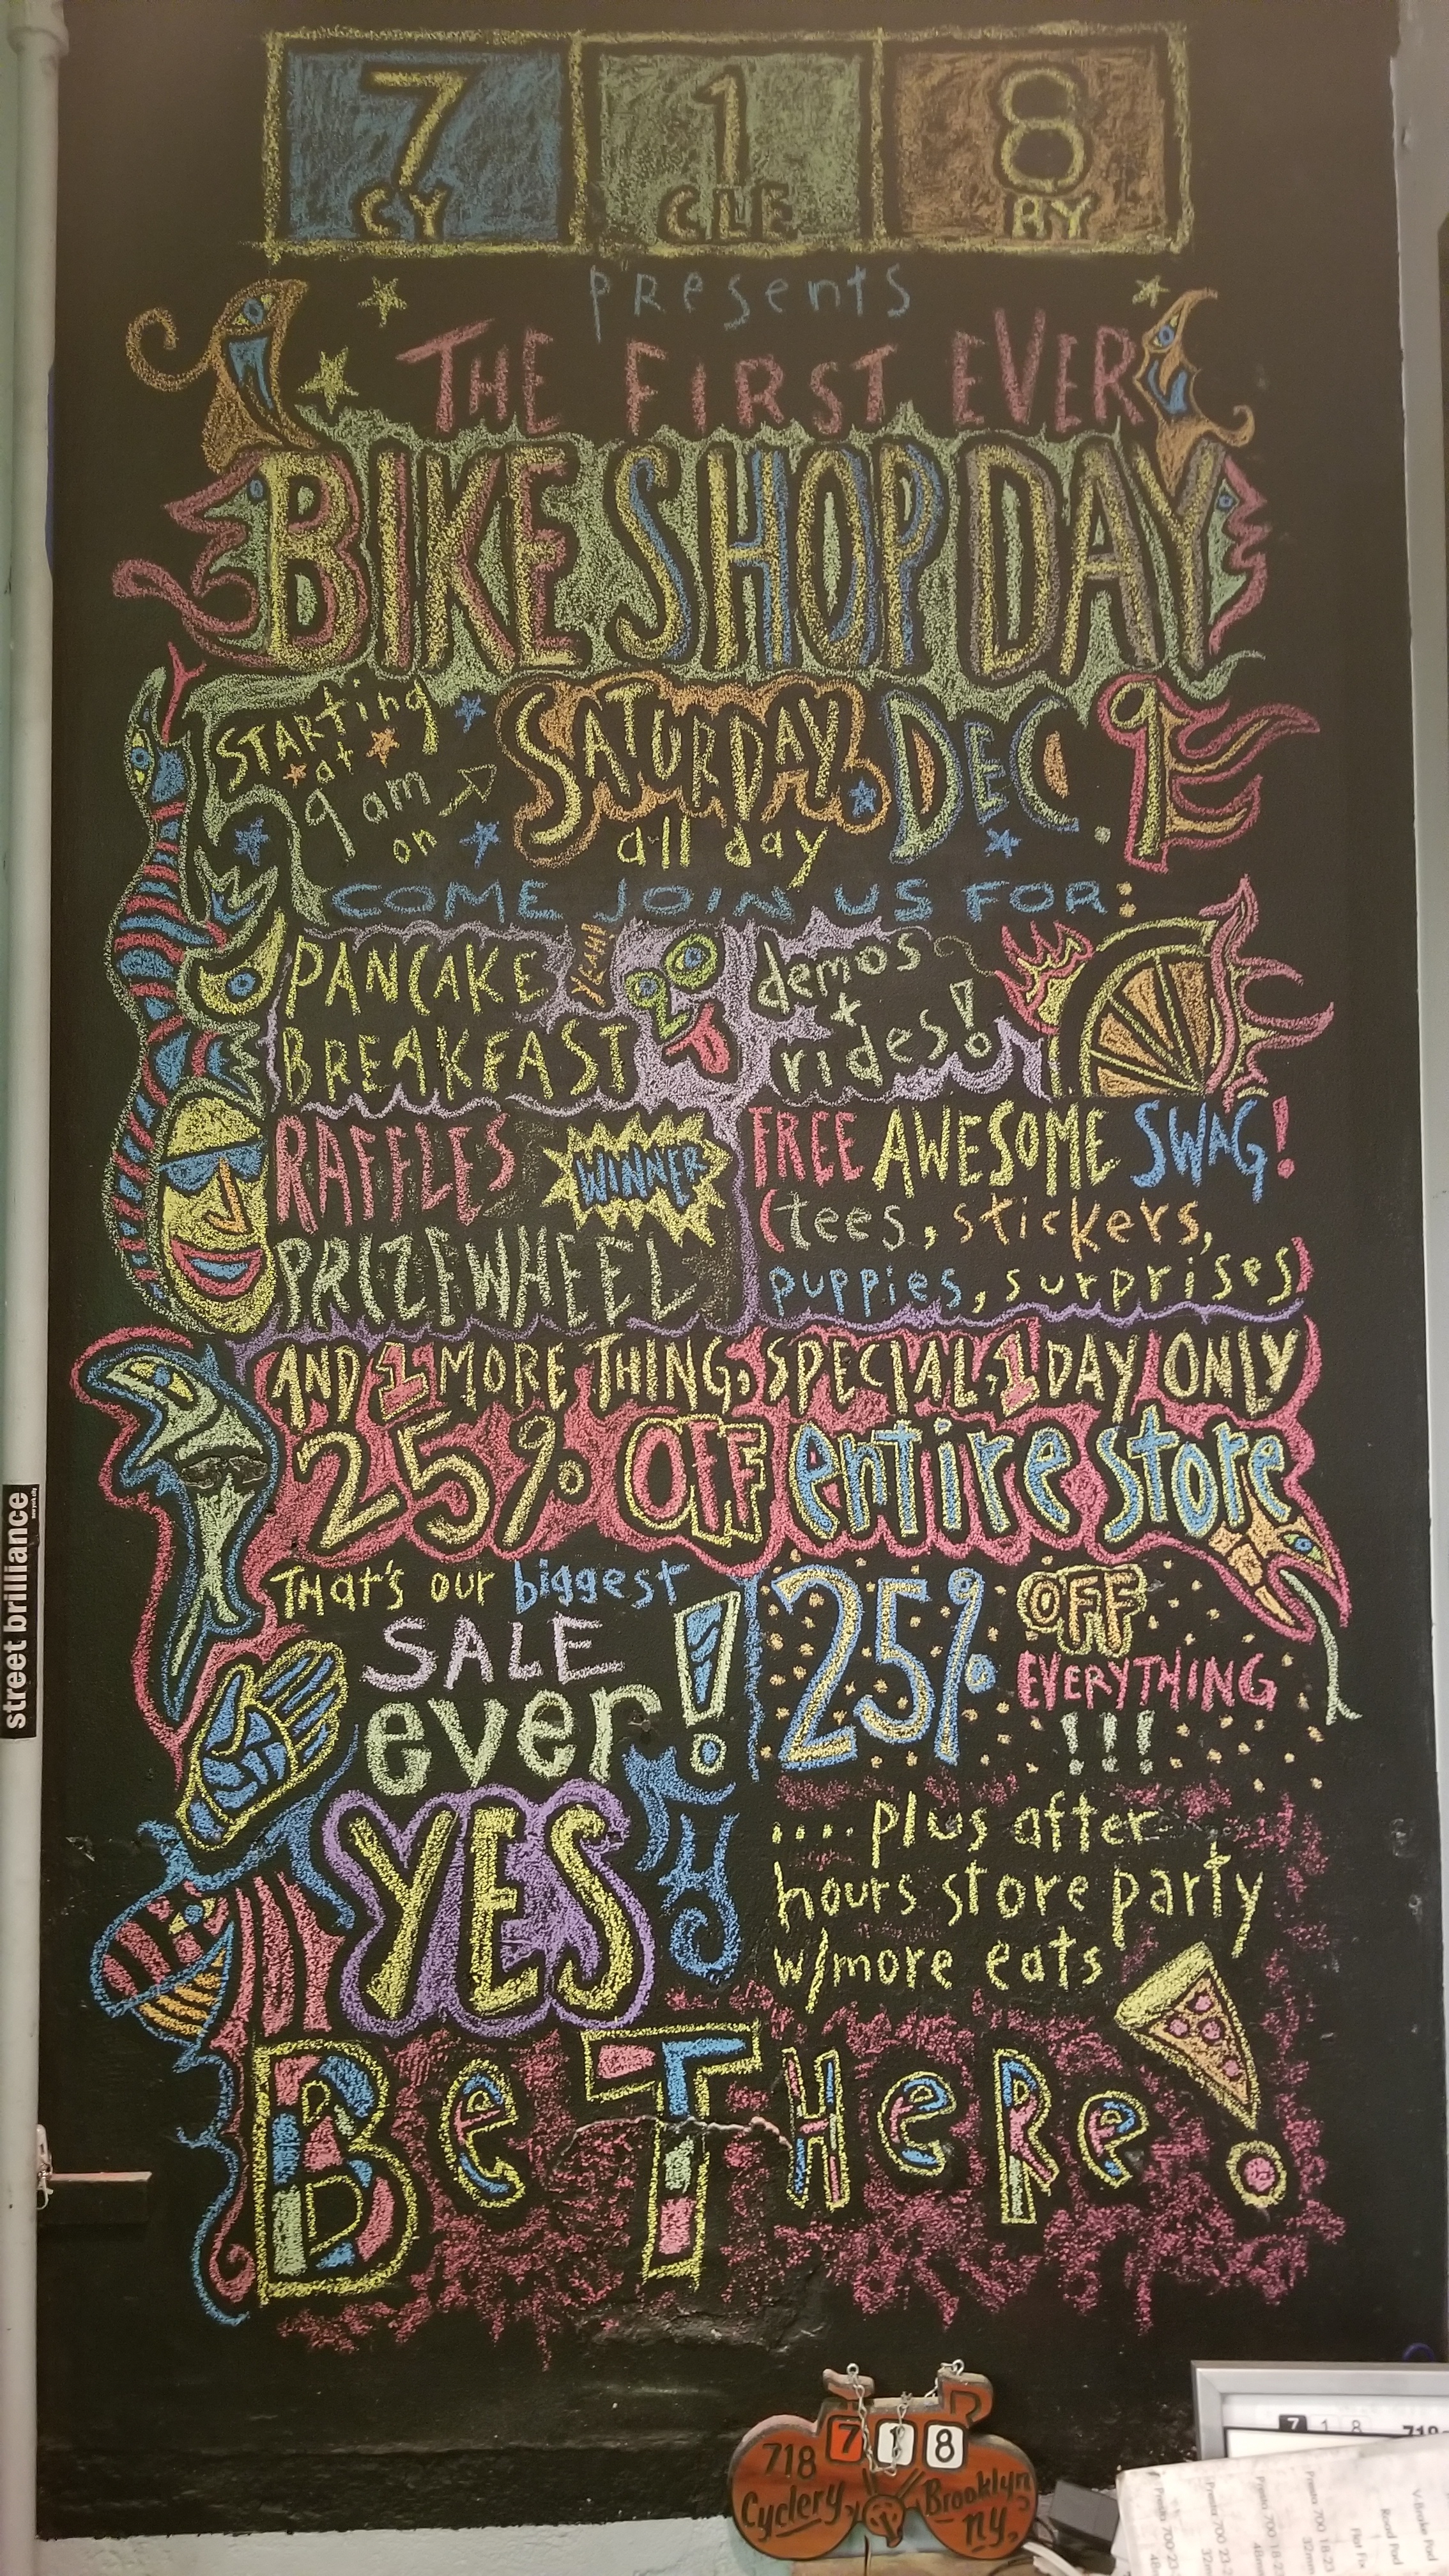 7 1 8
CY CLE RY
presents
THE FIRST EVER
BIKE SHOP DAY
STARting
at
9 am
on
SATURDAY DEC. 9
all day
COME JOIN US FOR:
PANCAKE
BREAKFAST
YEAH!
demos
+
rides!
RAFFLES
WINNER
PRIZE WHEEL
FREE AWESOME SWAG!
(tees, stickers,
puppies, surprises)
AND 1 MORE THING, SPECIAL, 1 DAY ONLY
25% OFF entire store
THat's our biggest
SALE
ever!
25% OFF
EVERYTHING
!!!
YES
.... plus after
hours store party
w/more eats
Be THeRe!
street brilliance
7 1 8
718
Cyclery,
Brooklyn
ny,
7 1 8
V-Brake Pad
Road Pad